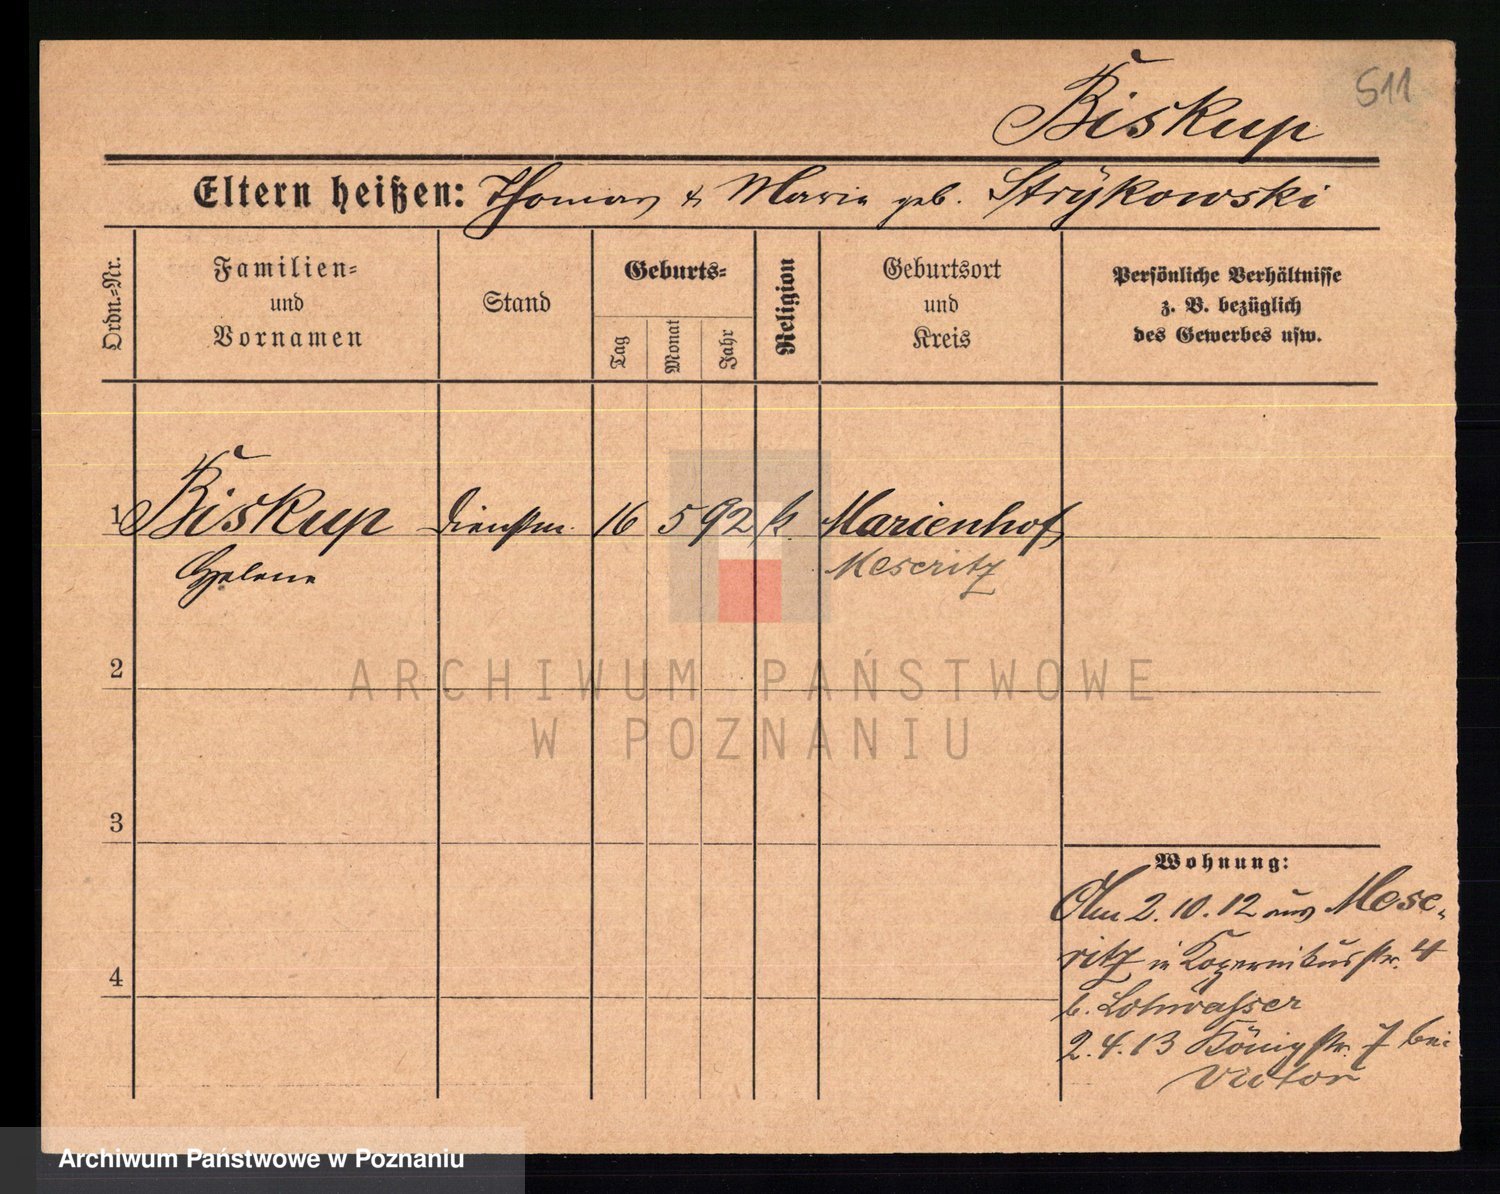 511
Biskup
Eltern heißen: Thomas & Marie geb. Strÿkowski
Ordn.=Nr.
Familien=
und
Vornamen
Stand
Geburts=
Tag
Monat
Jahr
Religion
Geburtsort
und
Kreis
Persönliche Verhältnisse
z. B. bezüglich
des Gewerbes usw.
1 Biskup Dienstm. 16 5 92 k. Marienhof
Helene Meseritz
2
3
4
Wohnung:
Am 2.10.12 aus Mese-
ritz in Kopernikusstr. 4
b. Lohwasser
2.4.13 Königstr. 7 bei
Victor
ARCHIWUM PAŃSTWOWE
W POZNANIU
Archiwum Państwowe w Poznaniu